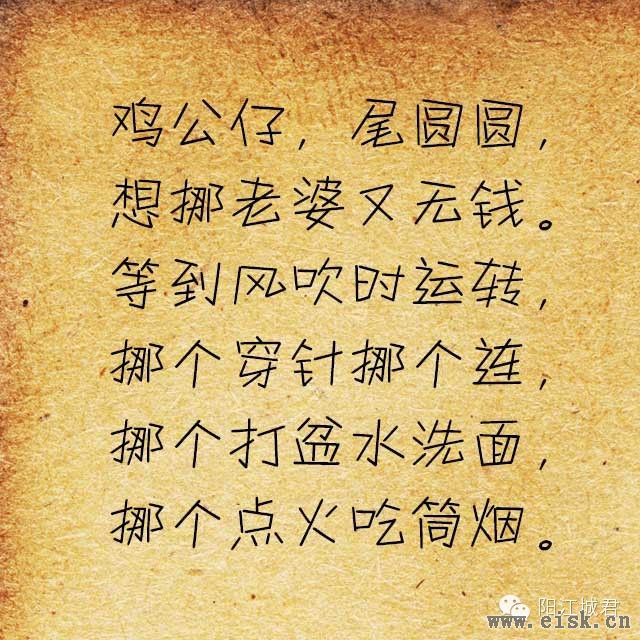 鸡公仔，尾圆圆，
想挪老婆又无钱。
等到风吹时运转，
挪个穿针挪个连，
挪个打盆水洗面，
挪个点火吃筒烟。
阳江城君
www.eisk.cn